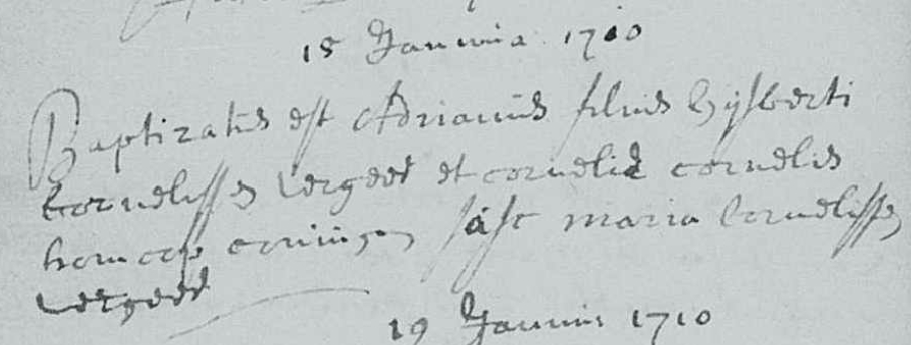 15 Januaria 1710
Baptizatus est Adrianus filius Gijsberti
Cornelissen Vergeer et cornelia cornelis
suscep maria Cornelissen
Vergeer
19 Januari 1710